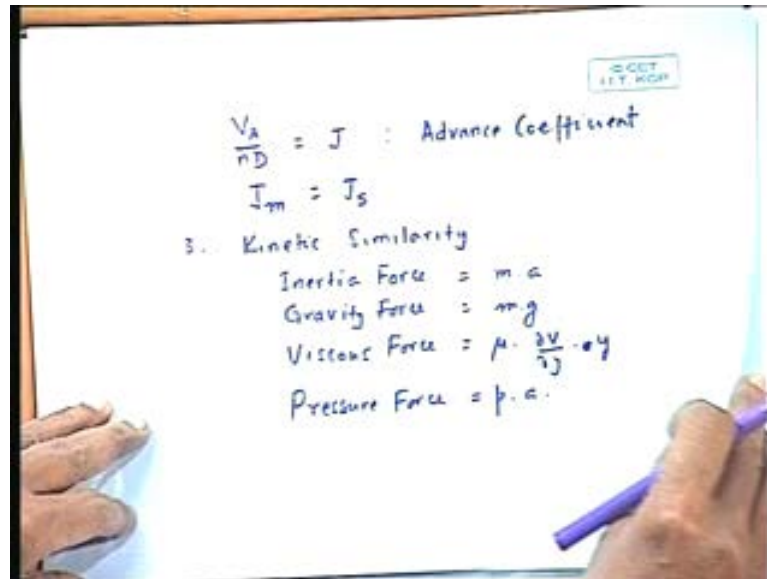 © CET
I.I.T. KGP
V_A / nD = J : Advance Coefficient
J_m = J_s
3. Kinetic Similarity
Inertia Force = m.a
Gravity Force = m.g
Viscous Force = μ. ∂V/∂y .y
Pressure Force = p.a.